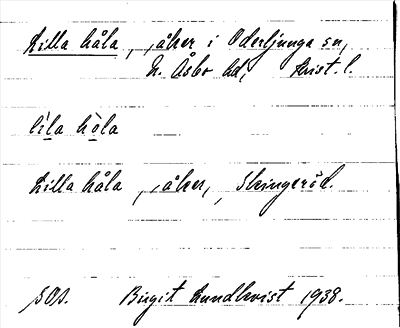 Lilla håla, åker i Oderljunga sn,
N. Åsbo hd, Krist. l.
lila hòla
Lilla håla, åker, Skingeröd.
SOS. Birgit Lundkvist 1938.